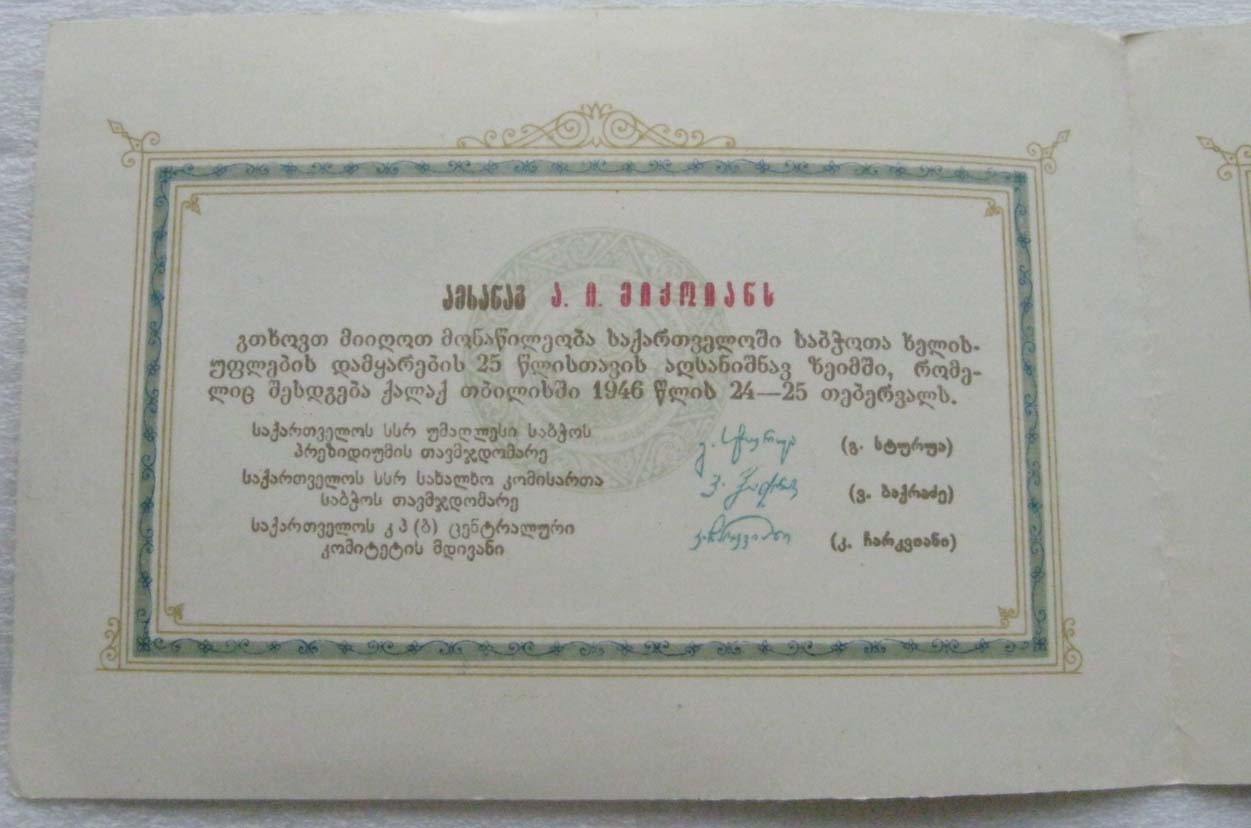 ამხანაგ ა. ი. მიქოიანს
გთხოვთ მიიღოთ მონაწილეობა საქართველოში საბჭოთა ხელის-
უფლების დამყარების 25 წლისთავის აღსანიშნავ ზეიმში, რომე-
ლიც შესდგება ქალაქ თბილისში 1946 წლის 24—25 თებერვალს.
საქართველოს სსრ უმაღლესი საბჭოს
პრეზიდიუმის თავმჯდომარე
გ. სტურუა (გ. სტურუა)
საქართველოს სსრ სახალხო კომისართა
საბჭოს თავმჯდომარე
ვ. ბაქრაძე (ვ. ბაქრაძე)
საქართველოს კ პ (ბ) ცენტრალური
კომიტეტის მდივანი
კ. ჩარკვიანი (კ. ჩარკვიანი)